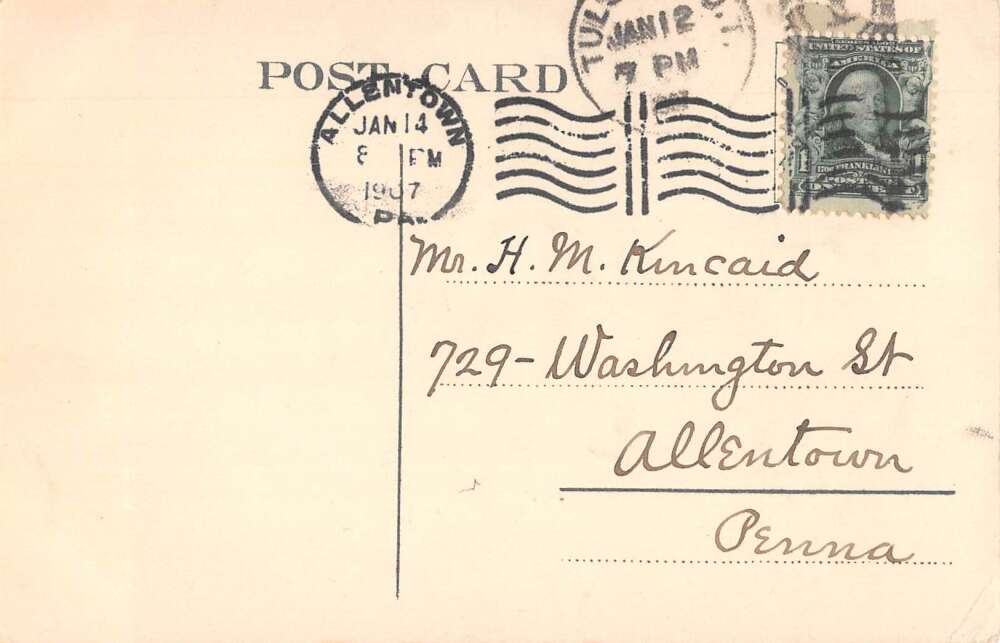 JAN 12
7 PM
UNITED STATES OF
AMERICA
FRANKLIN
POST CARD
ALLENTOWN
JAN 14
8 PM
1907
PA.
Mr. H. M. Kincaid
729 - Washington St
Allentown
Penna